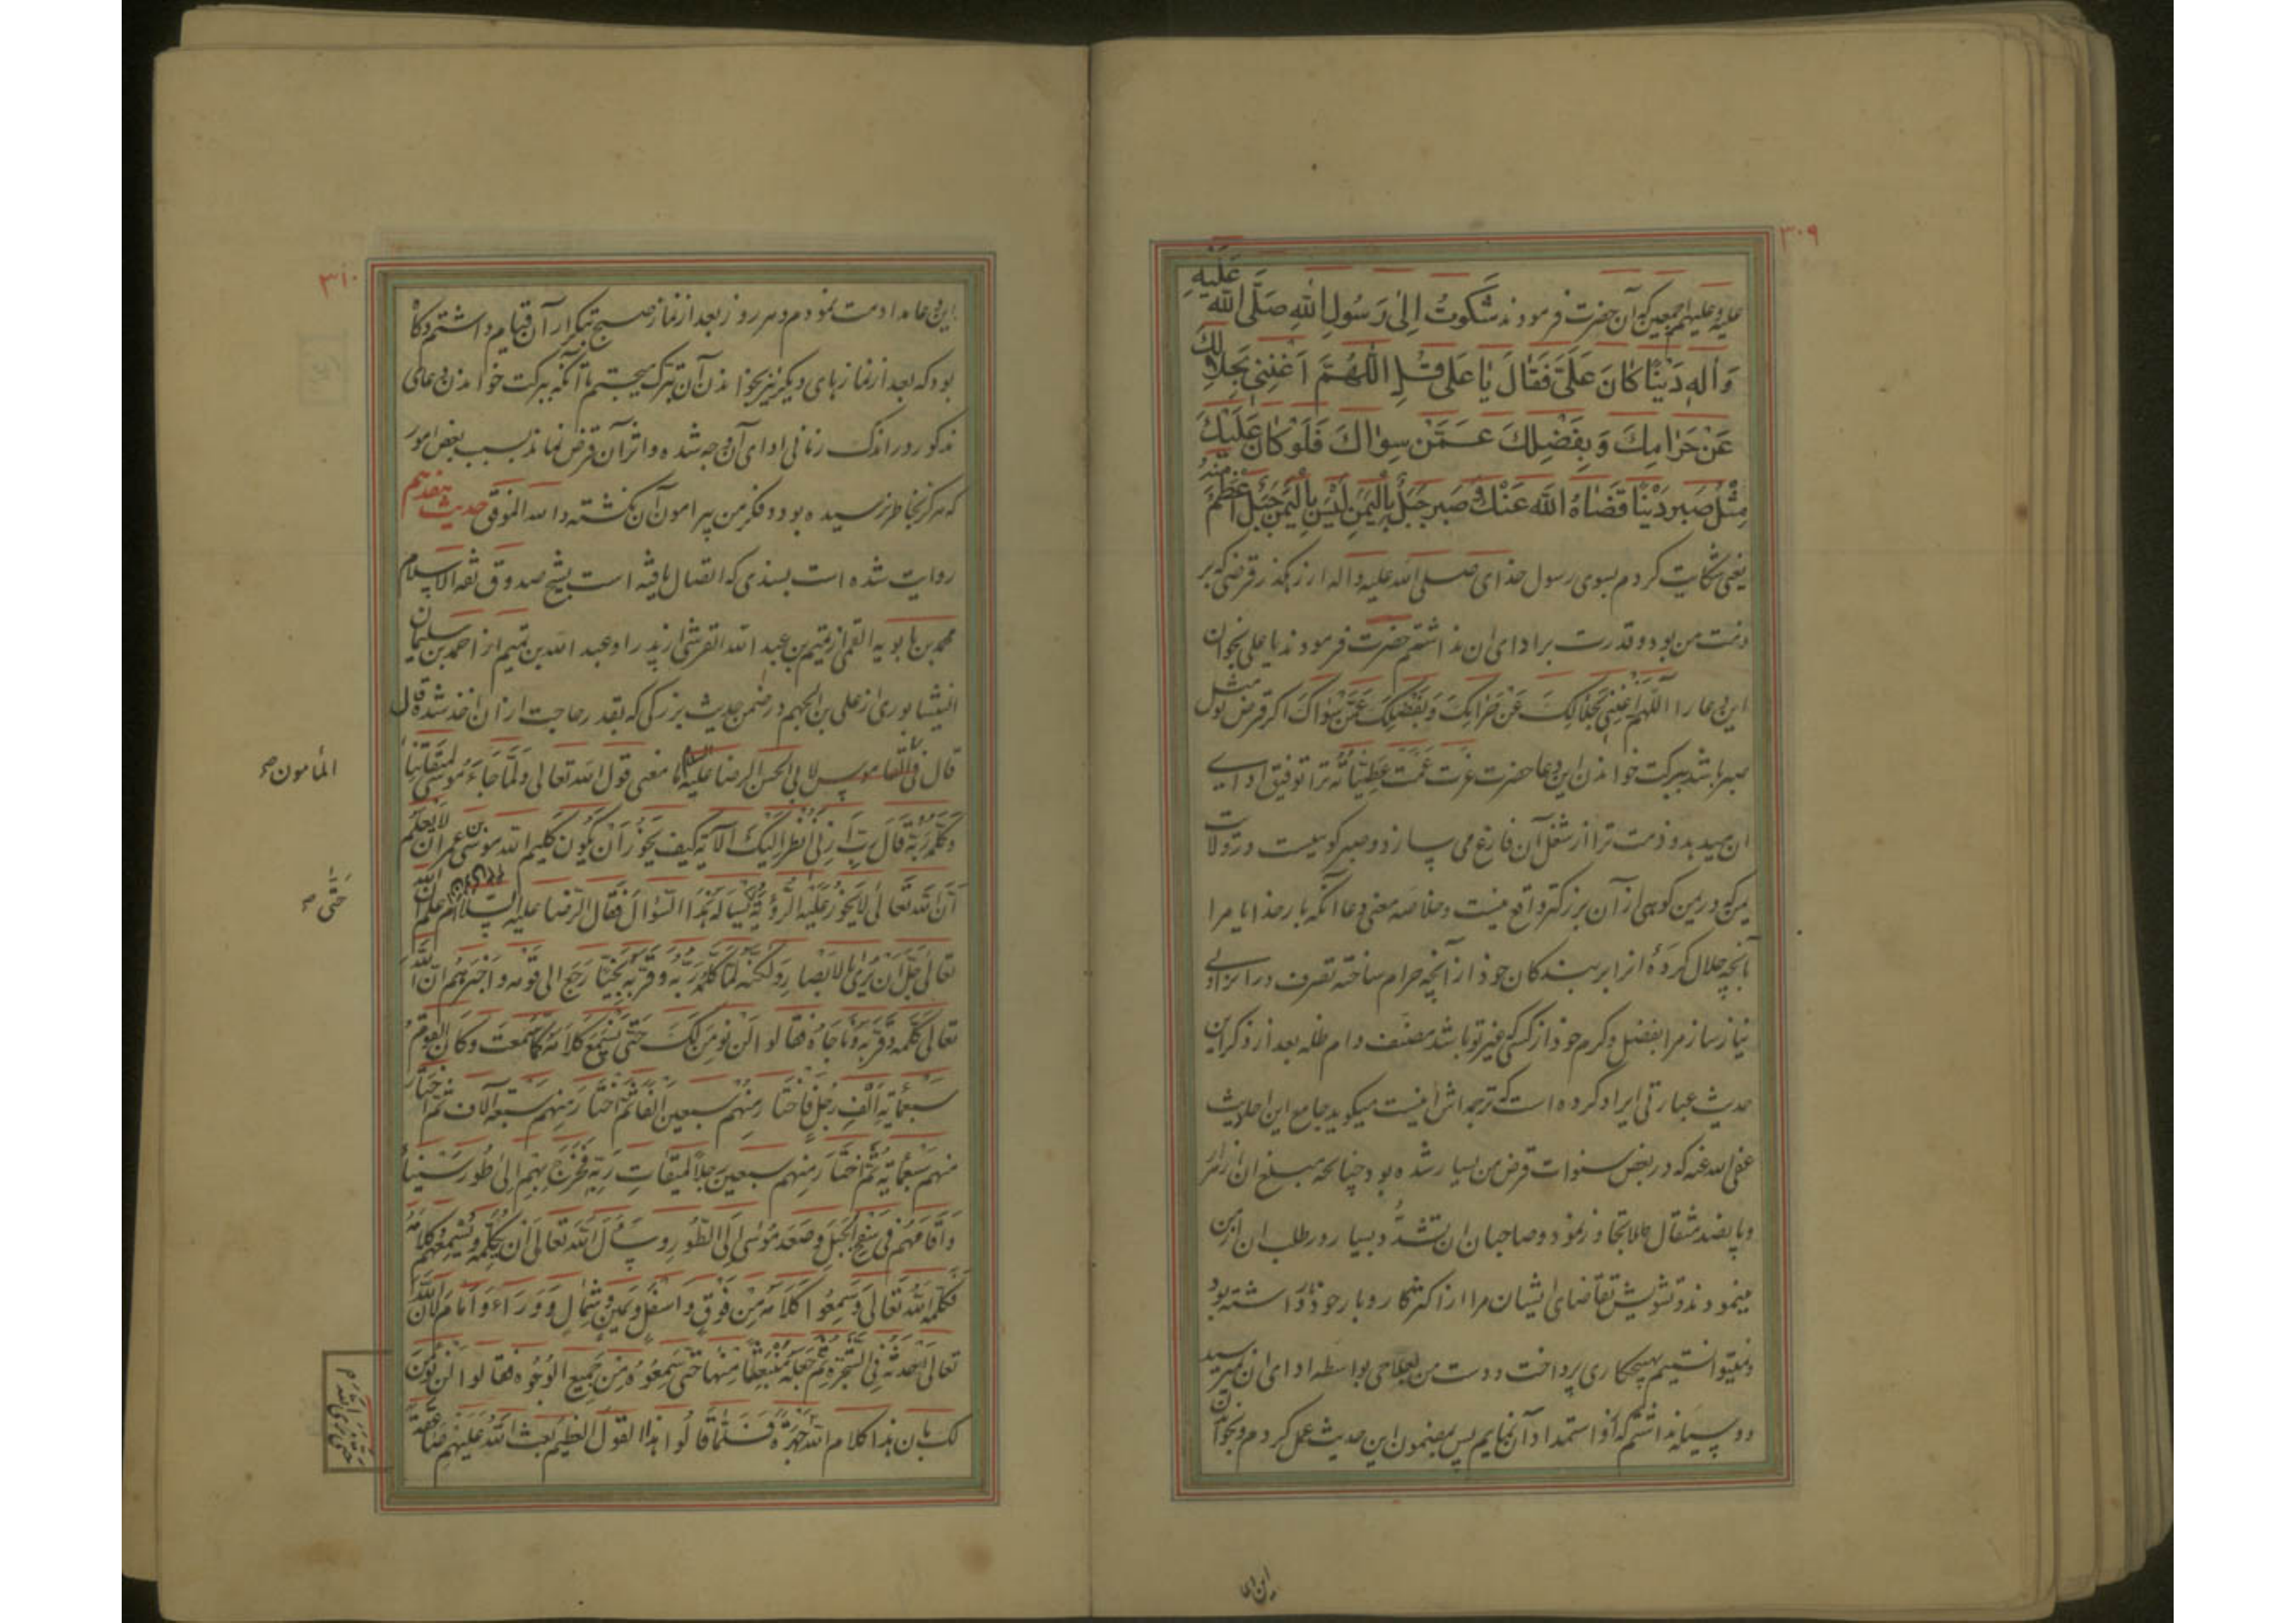 ۳۰۹
علیه و علیهم اجمعین که آن حضرت فرمودند شَکَوتُ اِلیٰ رَسُولِ اللهِ صَلَّی اللهُ عَلَیهِ
وَاٰلِهِ دَینًا کانَ عَلَیَّ فَقالَ یٰا عَلی قُلِ اللّهُمَّ اَغنِنی بِحَلالِکَ
عَن حَرامِکَ وَ بِفَضلِکَ عَمَّن سِواکَ فَلَو کانَ عَلَیکَ
مِثلُ صَبیر دَینًا قَضاهُ اللهُ عَنکَ وَ صَبیر جَبَلٌ بِالیَمَنِ لَیسَ بِالیَمَنِ جَبَلٌ اَعظَمَ مِنهُ
یعنی شکایت کردم بسوی رسول خدای صلی الله علیه و اله از رهکذر قرضی که بر
ذمت من بود و قدرت بر ادای ان نداشتم حضرت فرمودند یا علی بخوان
این دعا را اللّهُمَّ اَغنِنی بِحَلالِکَ عَن حَرامِکَ وَ بِفَضلِکَ عَمَّن سِواکَ اکر قرض تو مثل
صبیر باشد ببرکت خواندن این دعا حضرت عزت عمت عطیاته ترا توفیق ادای
ان میدهد و ذمت ترا از شغل آن فارغ می سازد و صبیر کوهیست در ولایت
یمن که در یمن کوهی از آن بزرکتر واقع نیست و خلاصه معنی دعا آنکه بار خدایا مرا
بآنچه حلال کردهٔ از برای بندکان خود از آنچه حرام ساخته تصرف در انرا بی
نیاز ساز مرا بفضل و کرم خود از کسی که غیر تو باشد مصنف دام ظله بعد از ذکر این
حدیث عبارتی ایراد کرده است که ترجمه اش اینست میکوید جامع این احادیث
عفی الله عنه که در بعض سنوات قرض من بسیار شده بود چنانچه مبلغ ان از هزار
و پانصد مثقال طلا تجاوز نموده و صاحبان ان تشدد بسیار در طلب ان از من
مینمودند و تشویش تقاضای ایشان مرا از اکثر کاروبار خود باز داشته بود
و نمیتوانستیم بهیچ کاری پرداخت و دست من بعلاجی بواسطه ادای ان نمیرسید
و وسیله نداشتم که از او استمداد آن نمایم پس بمضمون این حدیث عمل کردم و بخواندن
این دعا
۳۱۰
این دعا مداومت نمودم و هر روز بعد از نماز صبح بتکرار آن قیام داشتم و کاه
بود که بعد از نمازهای دیکر نیز بخواندن آن تبرک میجستم تا آنکه ببرکت خواندن دعای
مذکور در اندک زمانی ادای آن وجه شده و اثر آن قرض نماند بسبب بعض امور
که هرکز بخاطر نرسیده بود و فکر من پیرامون آن نکشته و الله الموفق حدیث هفدهم
روایت شده است بسندی که اتصال یافته است بشیخ صدوق ثقة الاسلام
محمد بن بابویه القمی از تمیم بن عبد الله القرشی از پدر او عبد الله بن تمیم از احمد بن سلیمان
النیشابوری از علی بن الجهم در ضمن حدیث بزرکی که بقدر حاجت از ان اخذ شده قال
قال لابی الحسن الرضا علیه السلام ما معنی قول الله تعالی وَلَمّا جاءَ مُوسی لِمیقاتِنا
المأمون صح
وَ کَلَّمَهُ رَبُّهُ قالَ رَبِّ اَرِنی اَنظُر اِلَیکَ الآیة کیف یَجُوزُ اَن یَکُونَ کَلیمُ الله مُوسَی بن عِمران لا یَعلَمُ
اَنَّ الله تَعالی لا یَجُوزُ عَلَیهِ الرُّؤیَة حَتّی یَسأَلَهُ هذا السُّؤال فَقالَ الرِّضا علیه السلام
حَتّی صح
تَعالی جَلَّ اَن یُری بِالاَبصارِ وَلکِنَّهُ لَمّا کَلَّمَهُ رَبُّهُ وَ قَرَّبَهُ نَجِیًّا رَجَعَ الی قَومِهِ وَ اَخبَرَهُم اَنَّ اللهَ
تعالی کَلَّمَهُ وَ قَرَّبَهُ وَ ناجاهُ فَقالوا لَن نُؤمِنَ لَکَ حَتّی نَسمَعَ کَلامَهُ کَما سَمِعتَ وَ کانَ القَومُ
سَبعَمائَةِ اَلفِ رَجُلٍ فَاختارَ مِنهُم سَبعینَ اَلفًا ثُمَّ اختارَ مِنهُم سَبعَة آلاف ثُمَّ اختارَ
مِنهُم سَبعَمائَة ثُمَّ اختارَ مِنهُم سَبعینَ رَجُلًا لِمیقاتِ رَبِّهِ فَخَرَجَ بِهِم اِلی طُورِ سَیناءَ
وَ اَقامَهُم فی سَفحِ الجَبَلِ وَ صَعَدَ مُوسی اِلَی الطُّورِ وَ سَأَلَ اللهَ تَعالی اَن یُکَلِّمَهُ وَ یُسمِعَهُم کَلامَهُ
فَکَلَّمَهُ اللهُ تَعالی وَ سَمِعُوا کَلامَهُ مِن فَوقٍ وَ اَسفَلَ وَ یَمینٍ وَ شِمالٍ وَ وَراءَ وَ اَمامَ لِاَنَّ اللهَ
تَعالی اَحدَثَهُ فِی الشَّجَرَةِ ثُمَّ جَعَلَهُ مُنبَعِثًا مِنها حَتّی سَمِعُوهُ مِن جَمیعِ الوُجُوهِ فَقالوا لَن نُؤمِنَ
لَکَ بِاَنَّ هذا کلام الله جَهرَةً فَلَمّا قالُوا هذَا القَولَ العَظیمَ بَعَثَ اللهُ عَلَیهِم صاعِقَةً
حَتّی نَرَی اللهَ